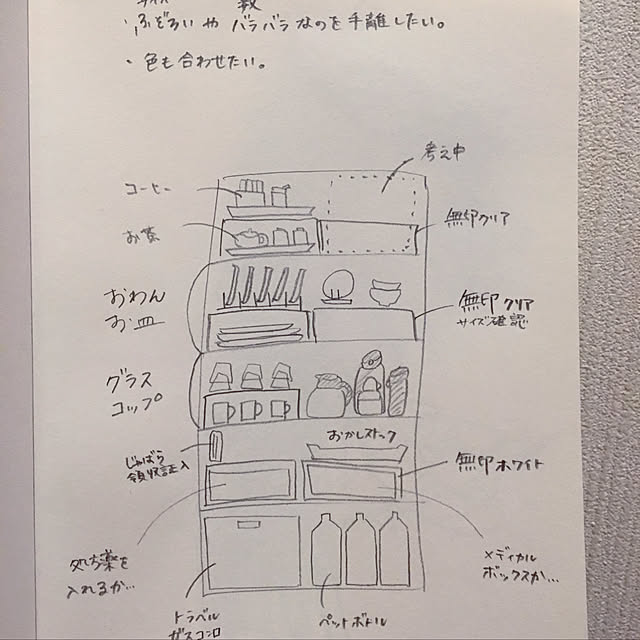 数
・ふぞろいや バラバラなのを手離したい。
・色も合わせたい。
考え中
コーヒー
無印クリア
お茶
おわん
お皿
無印クリア
サイズ確認
グラス
コップ
おかしストック
じゃばら
領収証入
無印ホワイト
処方薬を
入れるか…
メディカル
ボックスか…
トラベル
ガスコンロ
ペットボトル